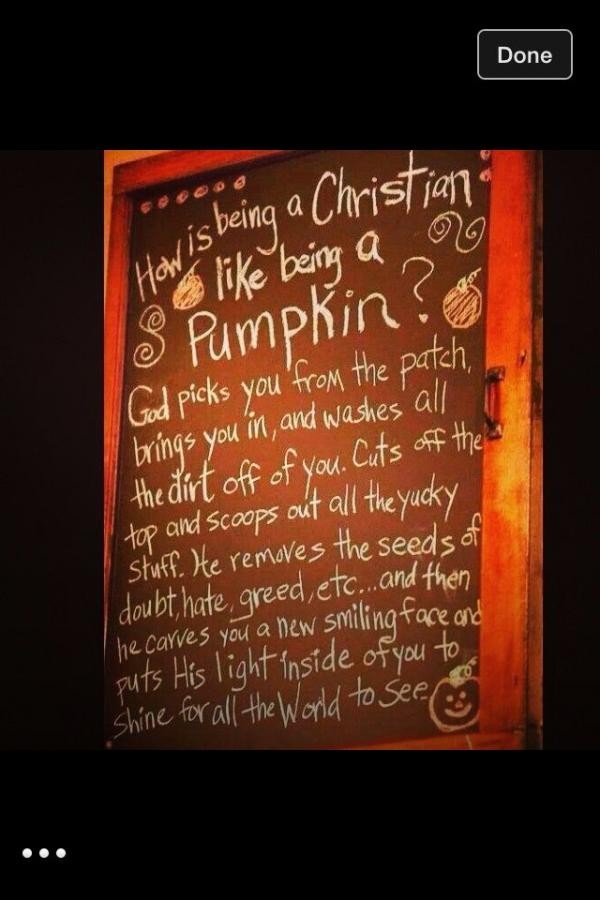 Done
How is being a Christian
like being a
Pumpkin?
God picks you from the patch,
brings you in, and washes all
the dirt off of you. Cuts off the
top and scoops out all the yucky
stuff. He removes the seeds of
doubt, hate, greed, etc...and then
he carves you a new smiling face and
puts His light inside of you to
shine for all the World to see.